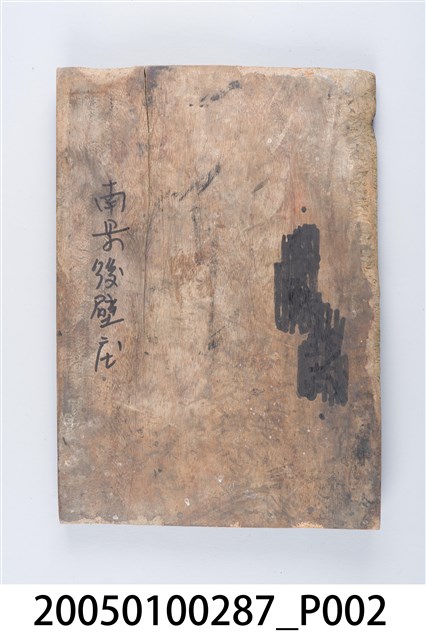 南县後壁庄
20050100287_P002